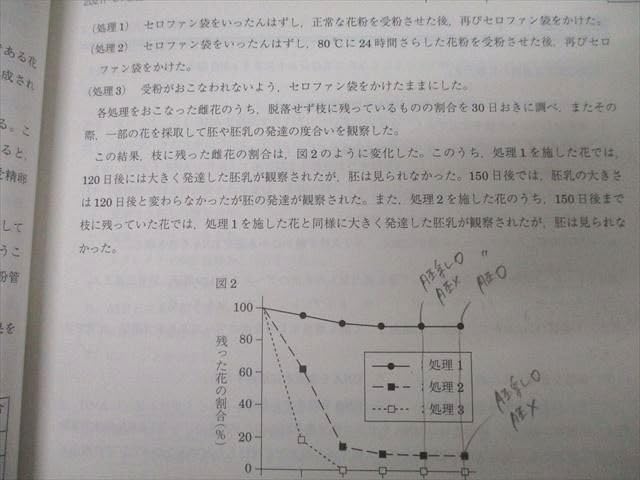 (処理1) セロファン袋をいったんはずし，正常な花粉を受粉させた後，再びセロファン袋をかけた。
(処理2) セロファン袋をいったんはずし，80℃に24時間さらした花粉を受粉させた後，再びセロ
ファン袋をかけた。
(処理3) 受粉がおこなわれないよう，セロファン袋をかけたままにした。
各処理をおこなった雌花のうち，脱落せず枝に残っているものの割合を30日おきに調べ，またその
際，一部の花を採取して胚や胚乳の発達の度合いを観察した。
この結果，枝に残った雌花の割合は，図2のように変化した。このうち，処理1を施した花では，
120日後には大きく発達した胚乳が観察されたが，胚は見られなかった。150日後では，胚乳の大きさ
は120日後と変わらなかったが胚の発達が観察された。また，処理2を施した花のうち，150日後まで
枝に残っていた花では，処理1を施した花と同様に大きく発達した胚乳が観察されたが，胚は見られな
かった。
図2
胚乳○ 〃
胚× 胚○
100
80
60
40
20
0
残った花の割合(%)
処理1
処理2
処理3
胚乳○
胚×
ある花
成され
る。こ
ると，
受精卵
して
うこ
粉管
果を